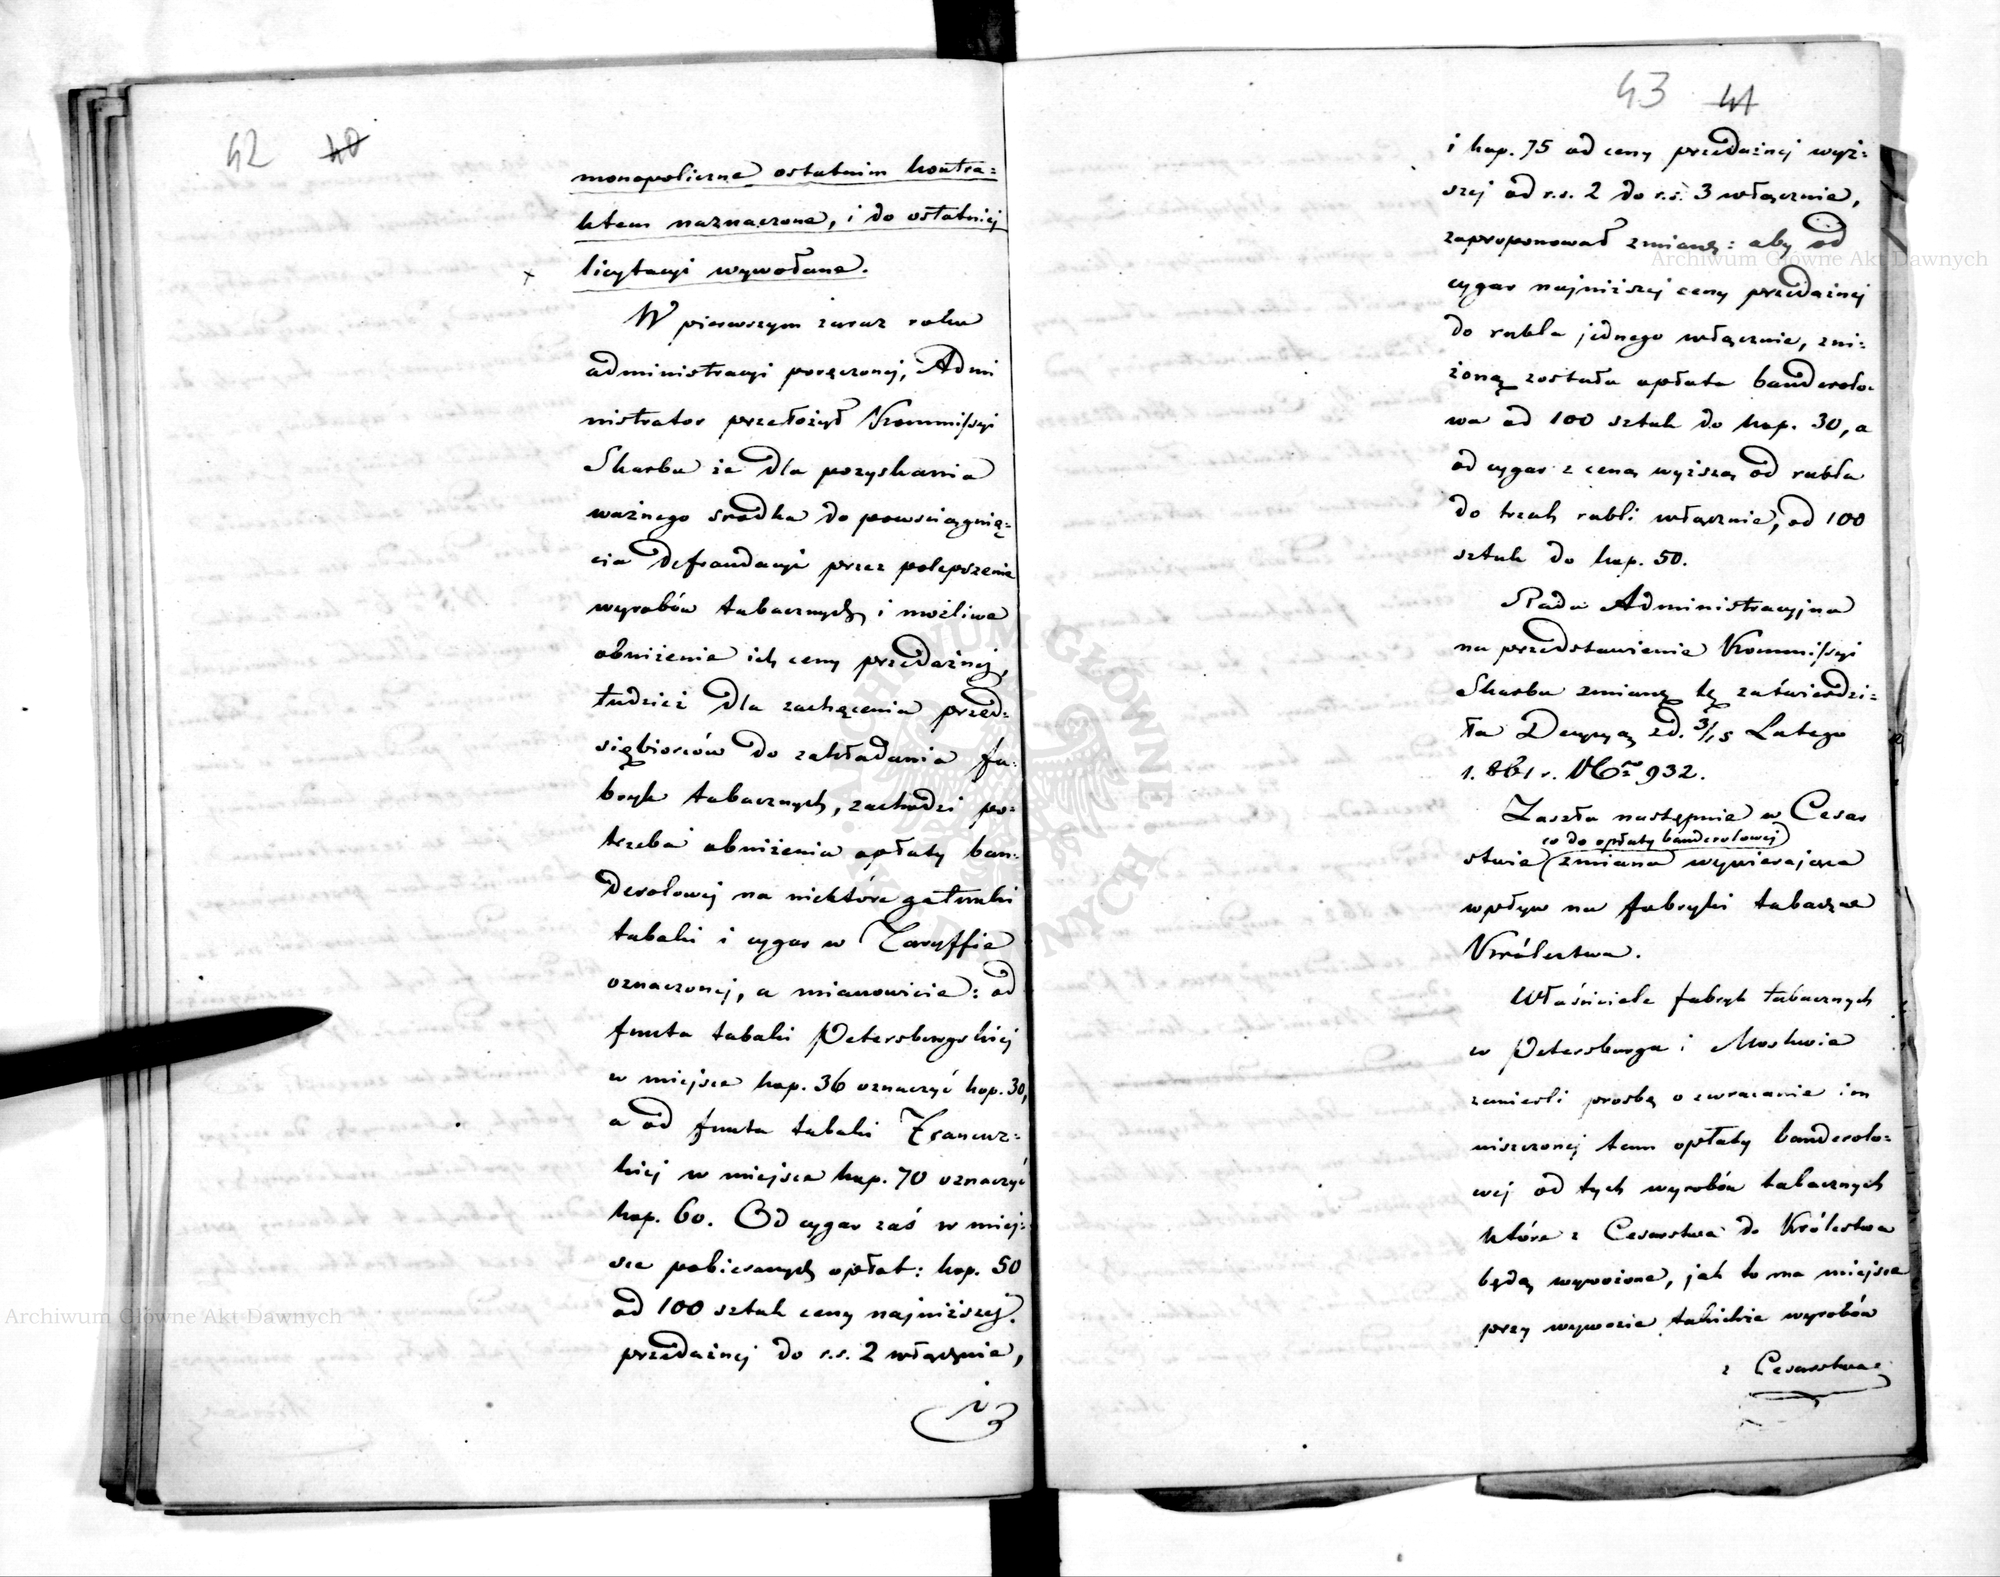 42 40
monopoliczne ostatnim kontra=
ktem naznaczone, i do ostatniej
licytacyi wywołane.
W pierwszym zaraz roku
administracyi poręczonej, Admi
nistrator przełożył Kommissyi
Skarbu że dla pozyskania
ważnego srodka do powsciągnię=
cia defraudacyi przez polepszenie
wyrobów tabacznych i możliwe
obniżenie ich ceny przedażnej,
tudzież dla zachęcenia przed=
siębiorców do zakładania fa=
bryk tabacznych, zachodzi po=
trzeba obniżenia opłaty ban=
derolowej na niektóre gatunki
tabaki i cygar w Taryffie
oznaczonej, a mianowicie: od
funta tabaki Petersburgskiej
w miejsce kop. 36 oznaczyć kop. 30,
a od funta tabaki Francuz=
kiej w miejsce kop. 70 oznaczyć
kop. 60. Od cygar zaś w miej=
sce pobieranych opłat: kop. 50
od 100 sztuk ceny najniższej
przedażnej do r.s. 2 włącznie,
i
43 41
i kop. 75 od ceny przedażnej wyż=
szej od r.s. 2 do r.s. 3 włącznie,
zaproponował zmianę: aby od
cygar najniższej ceny przedażnej
do rubla jednego włącznie, zni=
żoną została opłata banderolo=
wa od 100 sztuk do kop. 30, a
od cygar z ceną wyższą od rubla
do trzech rubli włącznie, od 100
sztuk do kop. 50.
Rada Administracyjna
na przedstawienie Kommissyi
Skarbu zmianę tę zatwierdzi=
ła Decyzyą z d. 3/15 Lutego
1861 r. No 932.
Zaszła następnie w Cesar
co do opłaty banderolowej
stwie zmiana wywierająca
wpływ na fabryki tabaczne
Królestwa.
Właściciele fabryk tabacznych
w Petersburgu i Moskwie
zanieśli prosbę o zwracanie im
niszczonej tam opłaty banderolo=
wej od tych wyrobów tabacznych
które z Cesarstwa do Królestwa
będą wywożone, jak to ma miejsce
przy wywozie takichże wyrobów
z Cesarstwa
Archiwum Główne Akt Dawnych
Archiwum Główne Akt Dawnych
ARCHIWUM GŁÓWNE AKT DAWNYCH